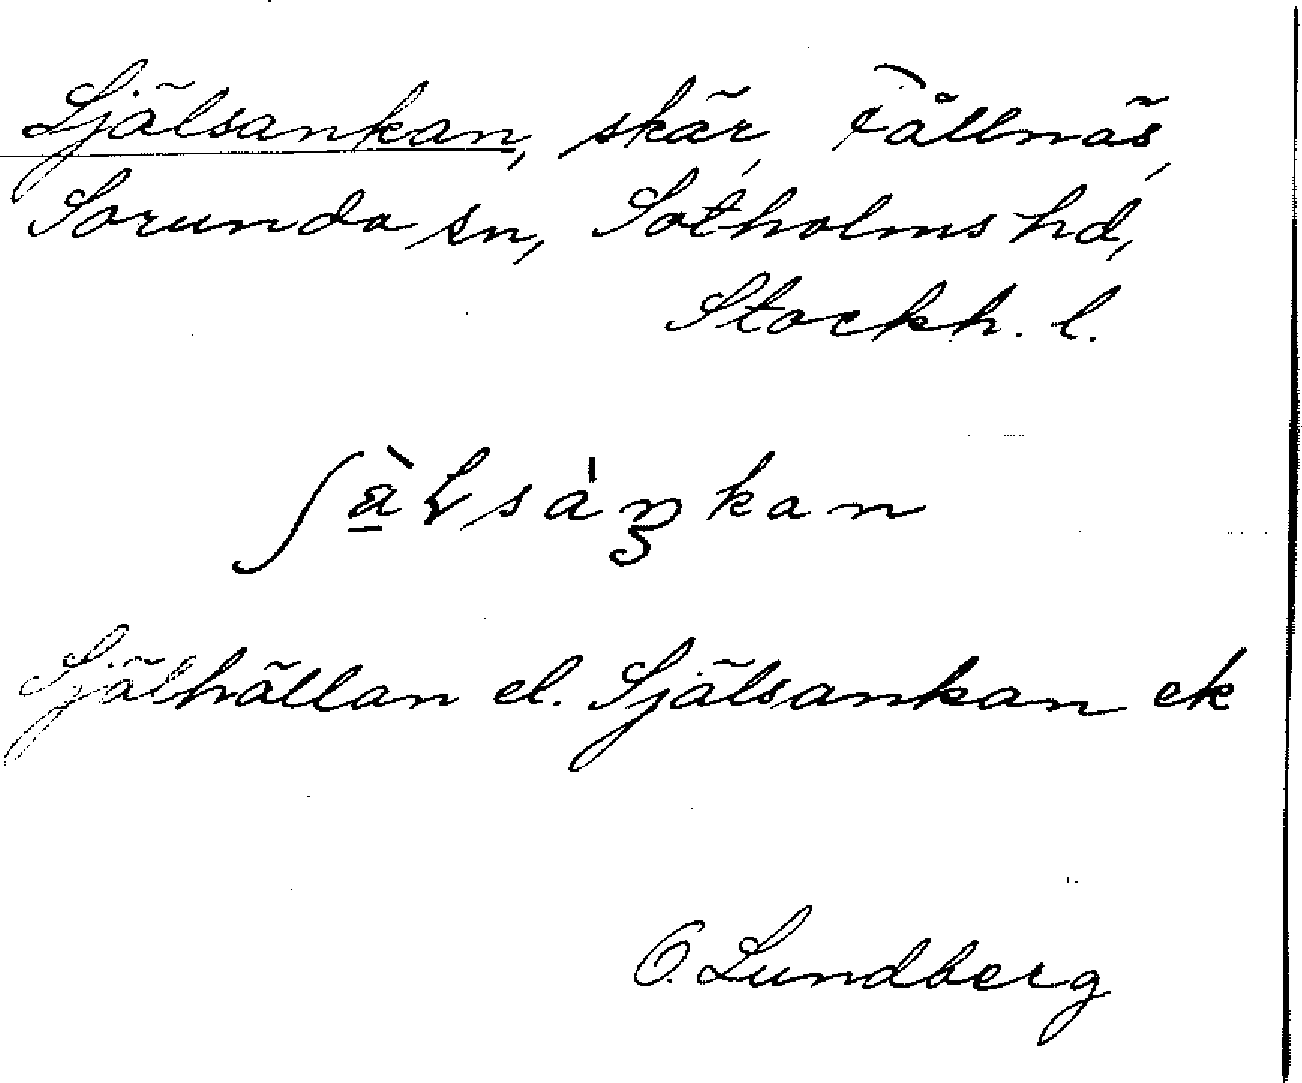 Själsankan, skär, Fållnäs,
Sorunda sn, Sotholms hd,
Stockh. l.
ʃà̱Lsȧŋkan
Själhällan el. Själsankan ek
O. Lundberg